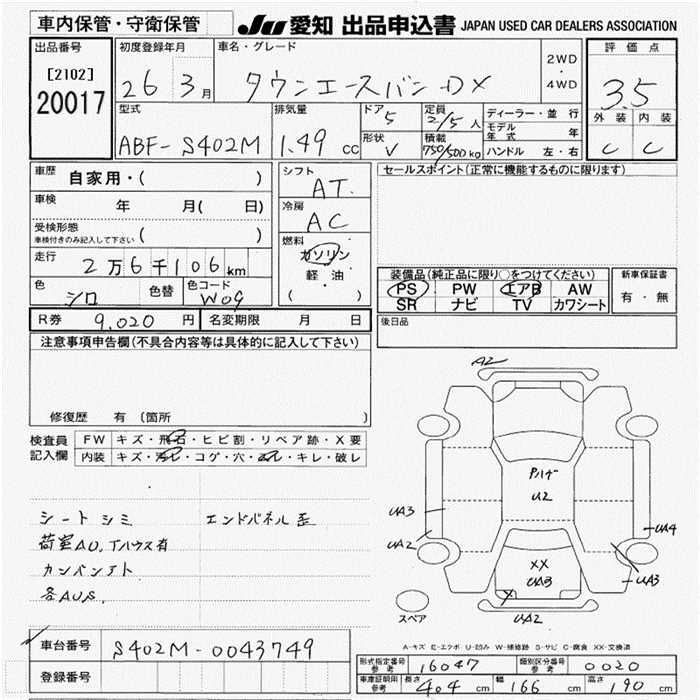 車内保管・守衛保管
JU 愛知 出品申込書 JAPAN USED CAR DEALERS ASSOCIATION
出品番号
[2102]
20017
初度登録年月
26 3月
車名・グレード
タウンエースバン DX
2WD
・
4WD
評価点
3.5
外装 内装
C C
型式
ABF-S402M
排気量
1.49 cc
ドア
5
形状
V
定員
2/5人
積載
750/500kg
ディーラー・並行
モデル年式 年
ハンドル 左・右
車歴
自家用・( )
車検
年 月( 日)
受検形態
車検付きのみ記入して下さい ( )
走行
2万6千106km
色
シロ
色替
色コード
W09
シフト
AT
冷房
AC
燃料
ガソリン
軽・油
( )
セールスポイント(正常に機能するものに限ります)
装備品(純正品に限り○をつけてください)
PS PW エアB AW
SR ナビ TV カワシート
新車保証書
有・無
R券 9,020円
名変期限 月 日
後日品
注意事項申告欄(不具合内容等は具体的に記入して下さい)
修復歴 有(箇所 )
検査員
記入欄
FW キズ・飛石・ヒビ割・リペア跡・X要
内装 キズ・汚レ・コゲ・穴・スレ・キレ・破レ
シートシミ エンドパネル歪
荷室AU、Tハウス有
カンバンアト
各AUS
A2
Pハゲ
U2
UA3
UA2
UA4
UA3
XX
UA3
X
UA2
スペア
A-キズ E-エクボ U-凹み W-補修跡 S-サビ C-腐食 XX-交換済
車台番号 S402M-0043749
登録番号
形式指定番号
参考
16047
類別区分番号
参考
0020
車庫証明用
参考
長さ 404 cm
幅 166 cm
高さ 190 cm